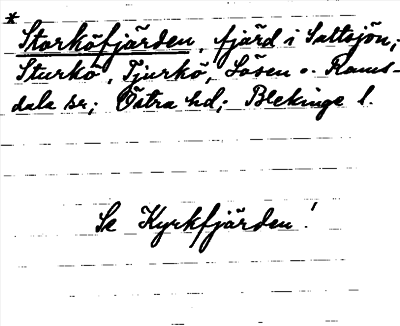 *
Storköfjärden, fjärd i Saltsjön;
Sturkö, Tjurkö, Lösen o. Rams-
dala sn; Östra hd; Blekinge l.
Se Kyrkfjärden!